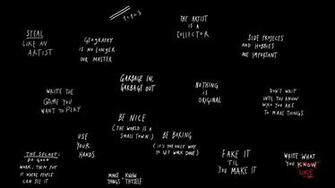 STEAL
LIKE AN
ARTIST
GEOGRAPHY
IS NO LONGER
OUR MASTER
THE ARTIST
IS A
COLLECTOR
SIDE PROJECTS
AND HOBBIES
ARE IMPORTANT
WRITE THE
GAME YOU
WANT TO PLAY
GARBAGE IN,
GARBAGE OUT
NOTHING
IS
ORIGINAL
DON'T WAIT
UNTIL YOU KNOW
WHO YOU ARE
TO MAKE THINGS
USE
YOUR
HANDS
BE NICE
(THE WORLD IS A
SMALL TOWN)
BE BORING
(IT'S THE ONLY WAY
TO GET WORK DONE)
THE SECRET:
DO GOOD
WORK, THEN PUT
IT WHERE PEOPLE
CAN SEE IT
MAKE KNOW
THINGS THYSELF
FAKE IT
'TIL
YOU MAKE IT
WRITE WHAT
YOU KNOW
LIKE